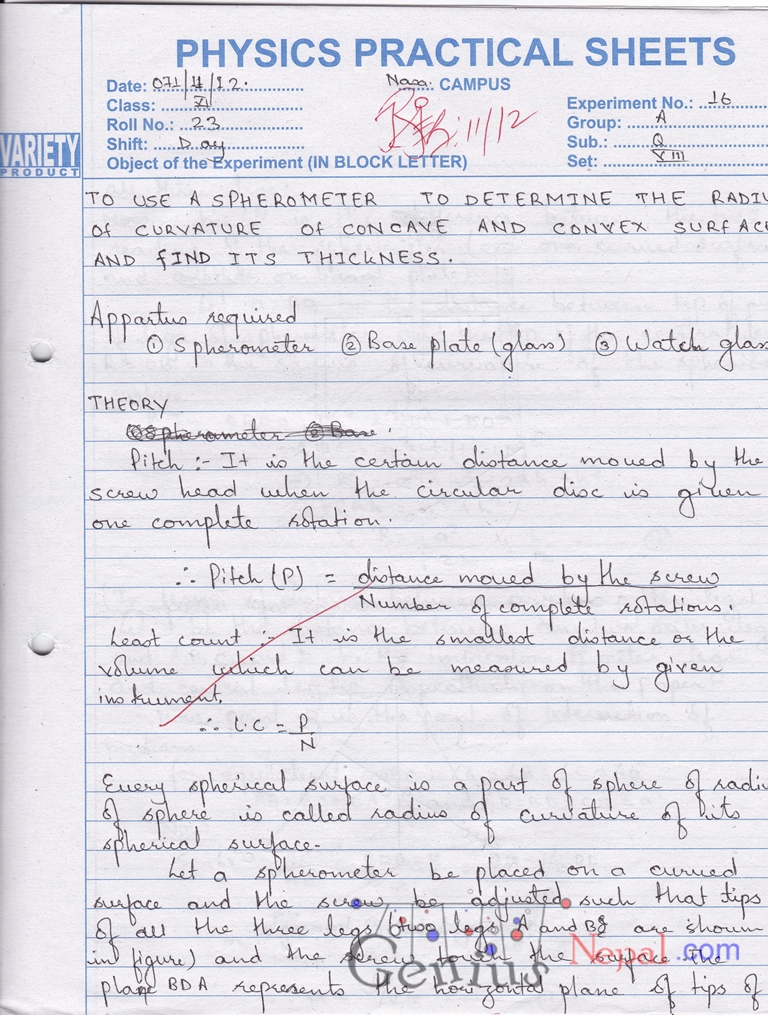 PHYSICS PRACTICAL SHEETS
Date: 071/11/12.
Nasa. CAMPUS
Class: XI
Experiment No.: 16
Roll No.: 23
Group: A
Shift: Day
Sub.: Q
Set: XIII
VARIETY
PRODUCT
Object of the Experiment (IN BLOCK LETTER)
TO USE A SPHEROMETER TO DETERMINE THE RADIU
OF CURVATURE OF CONCAVE AND CONVEX SURFACE
AND FIND ITS THICKNESS.
Appartus required
① Spherometer ② Base plate (glass) ③ Watch glas
THEORY
①Spherometer ② Base.
Pitch :- It is the certain distance moved by the
screw head when the circular disc is given
one complete rotation.
∴ Pitch (P) = distance moved by the screw
Number of complete rotations.
Least count :- It is the smallest distance or the
volume which can be measured by given
instrument.
∴ L.C = P
N
Every spherical surface is a part of sphere of radiu
of sphere is called radius of curvature of its
spherical surface.
Let a spherometer be placed on a curved
surface and the screw be adjusted such that tips
of all the three legs (two legs A and B are shown
in figure) and the screw touch the surface The
plane BDA represents the horizontal plane of tips of
Genius Nepal.com